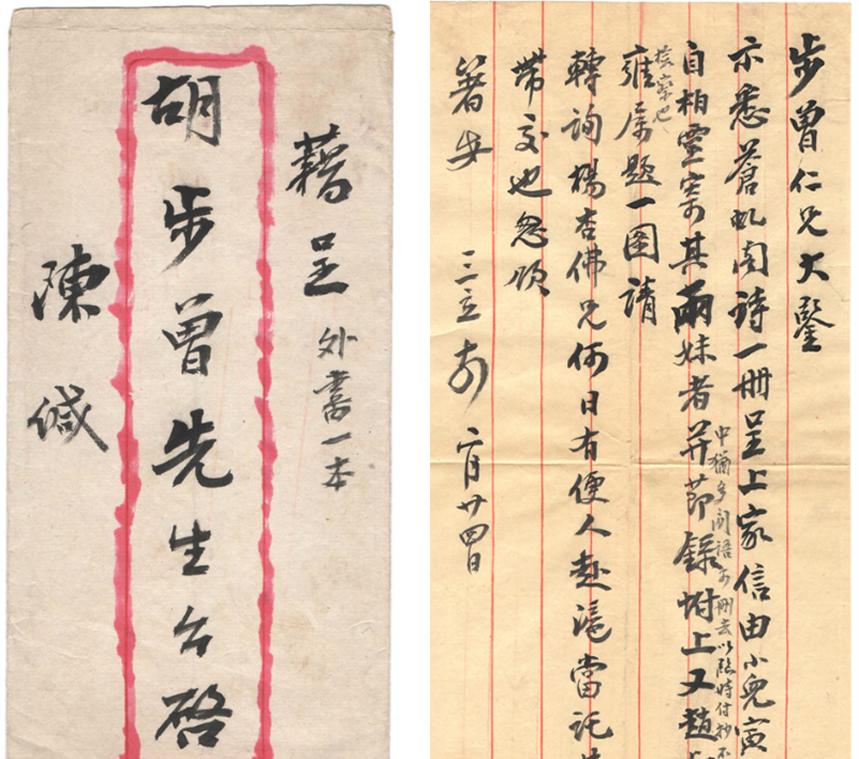 藉呈 外書一本
胡步曾先生台啓
陳緘
步曾仁兄大鑒
示悉蒼虬閣詩一冊呈上家信由小兒寅
中猶多閒語未刪去以臨時付抄不
自柏靈寄其兩妹者并節錄坿上又趙
檢察也
雍屬題一圖請
轉詢楊杏佛兄何日有便人赴滬當託
帶交也怱頌
箸安 三立 月廿四日